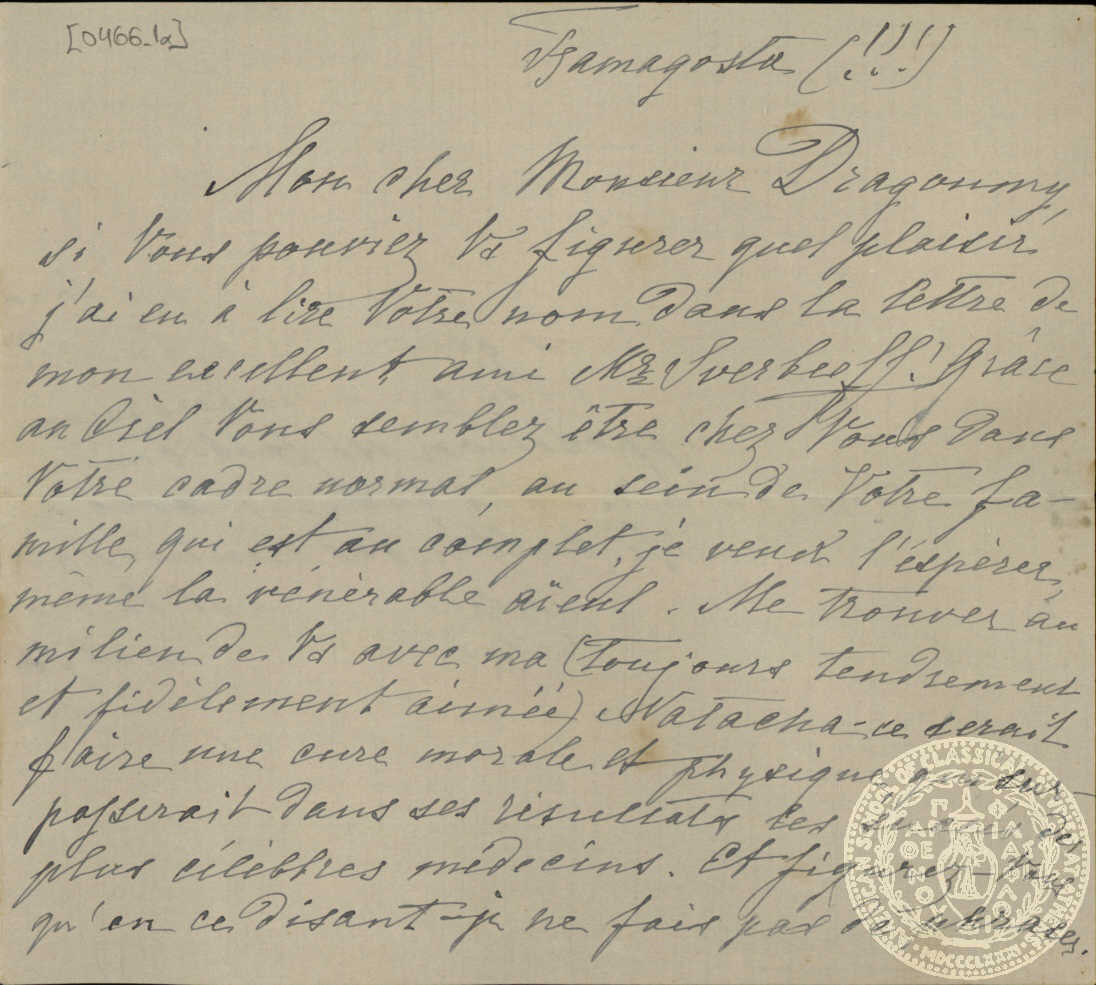 [0466_1a]
Famagosta (!!!)
Mon cher Monsieur Dragoumy,
si Vous pouviez Vs figurer quel plaisir
j'ai eu à lire Votre nom dans la lettre de
mon excellent ami Mr Sverbeeff! Grâce
au Ciel Vous semblez être chez Vous dans
Votre cadre normal, au sein de Votre fa-
mille, qui est au complet, je veux l'espérer,
même la vénérable aïeul. Me trouver au
milieu de Vs avec ma (toujours tendrement
et fidèlement aimée) Natacha - ce serait
faire une cure morale et physique, qui sur-
passerait dans ses résultats les des
plus célèbres médecins. Et figurez-Vous
qu'en ce disant - je ne fais pas de phrases.
MDCCCLXXXI